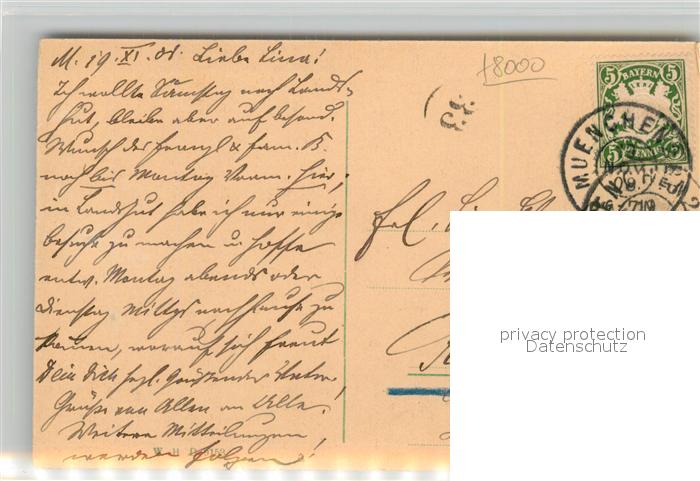 M. 19. XI. 08. Liebe Lina!
Ich wollte Samstag nach Lands-
hut, bleibe aber auf besond.
Wunsch des Franzl & Fam. K.
noch bis Montag Vorm. hier,
in Landshut habe ich nur einige
Besuche zu machen u. hoffe
entw. Montag abends oder
Dienstag Mittgs nach Hause zu
kommen, worauf sich freut
Dein Dich herzl. grüßender
Grüße von Allen an Alle.
Weitere Mitteilungen
werden folgen!
+8000
BAYERN
5 5
PFENNIG
MUENCHEN 2
Frl.
privacy protection
Datenschutz